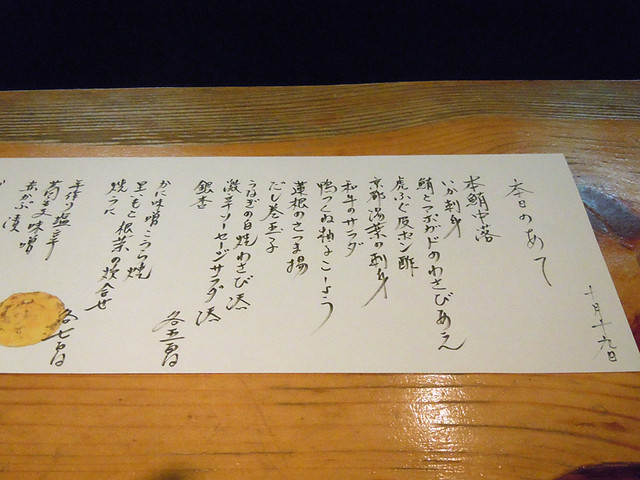 本日のあて
十月十九日
本鮪中落
いか刺身
鮪とアボガドのわさびあえ
虎ふぐ皮ポン酢
京都湯葉の刺身
和牛のサラダ
鴨つくね柚子こしょう
蓮根のさつま揚
だし巻玉子
うなぎの白焼わさび添
激辛ソーセージサラダ添
銀杏
各五百円
かに味噌こうら焼
里いもと根菜の炊合せ
焼うに
各七百円
手作り塩辛
味噌
赤かぶ漬